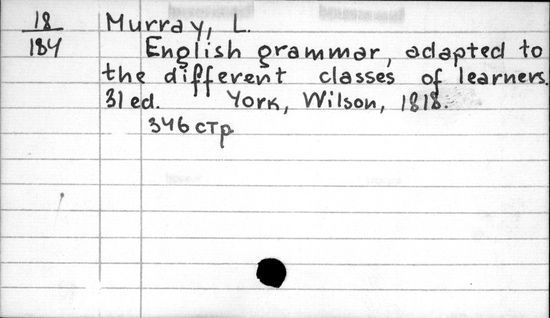 18
184
Murray, L.
English grammar, adapted to
the different classes of learners.
31 ed. York, Wilson, 1818.
346 стр